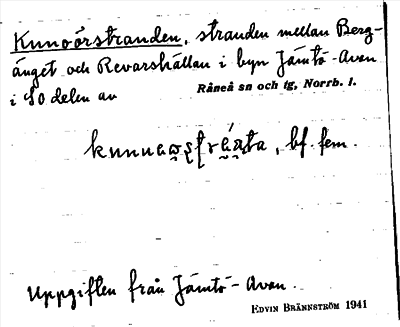 Kunoörstranden, stranden mellan Berg-
änget och Revarshällan i byn Jämtö-Avan
i SO delen av
Råneå sn och tg, Norrb. l.
bf. fem.
Uppgiften från Jämtö-Avan.
EDVIN BRÄNNSTRÖM 1941